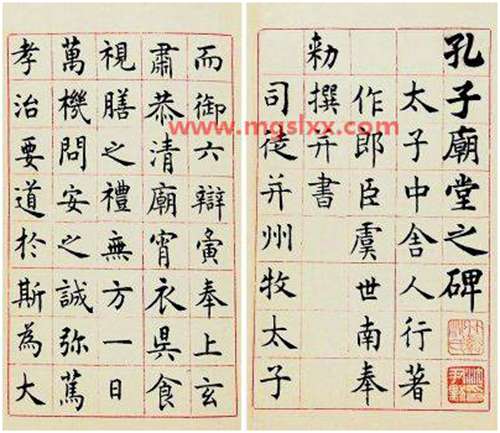 孔子廟堂之碑
太子中舍人行著
作郎臣虞世南奉
勑撰并書
司徒并州牧太子
而御六辯寅奉上玄
肅恭清廟宵衣昃食
視膳之禮無方一日
萬機問安之誠弥篤
孝治要道於斯為大
www.mgslxx.com